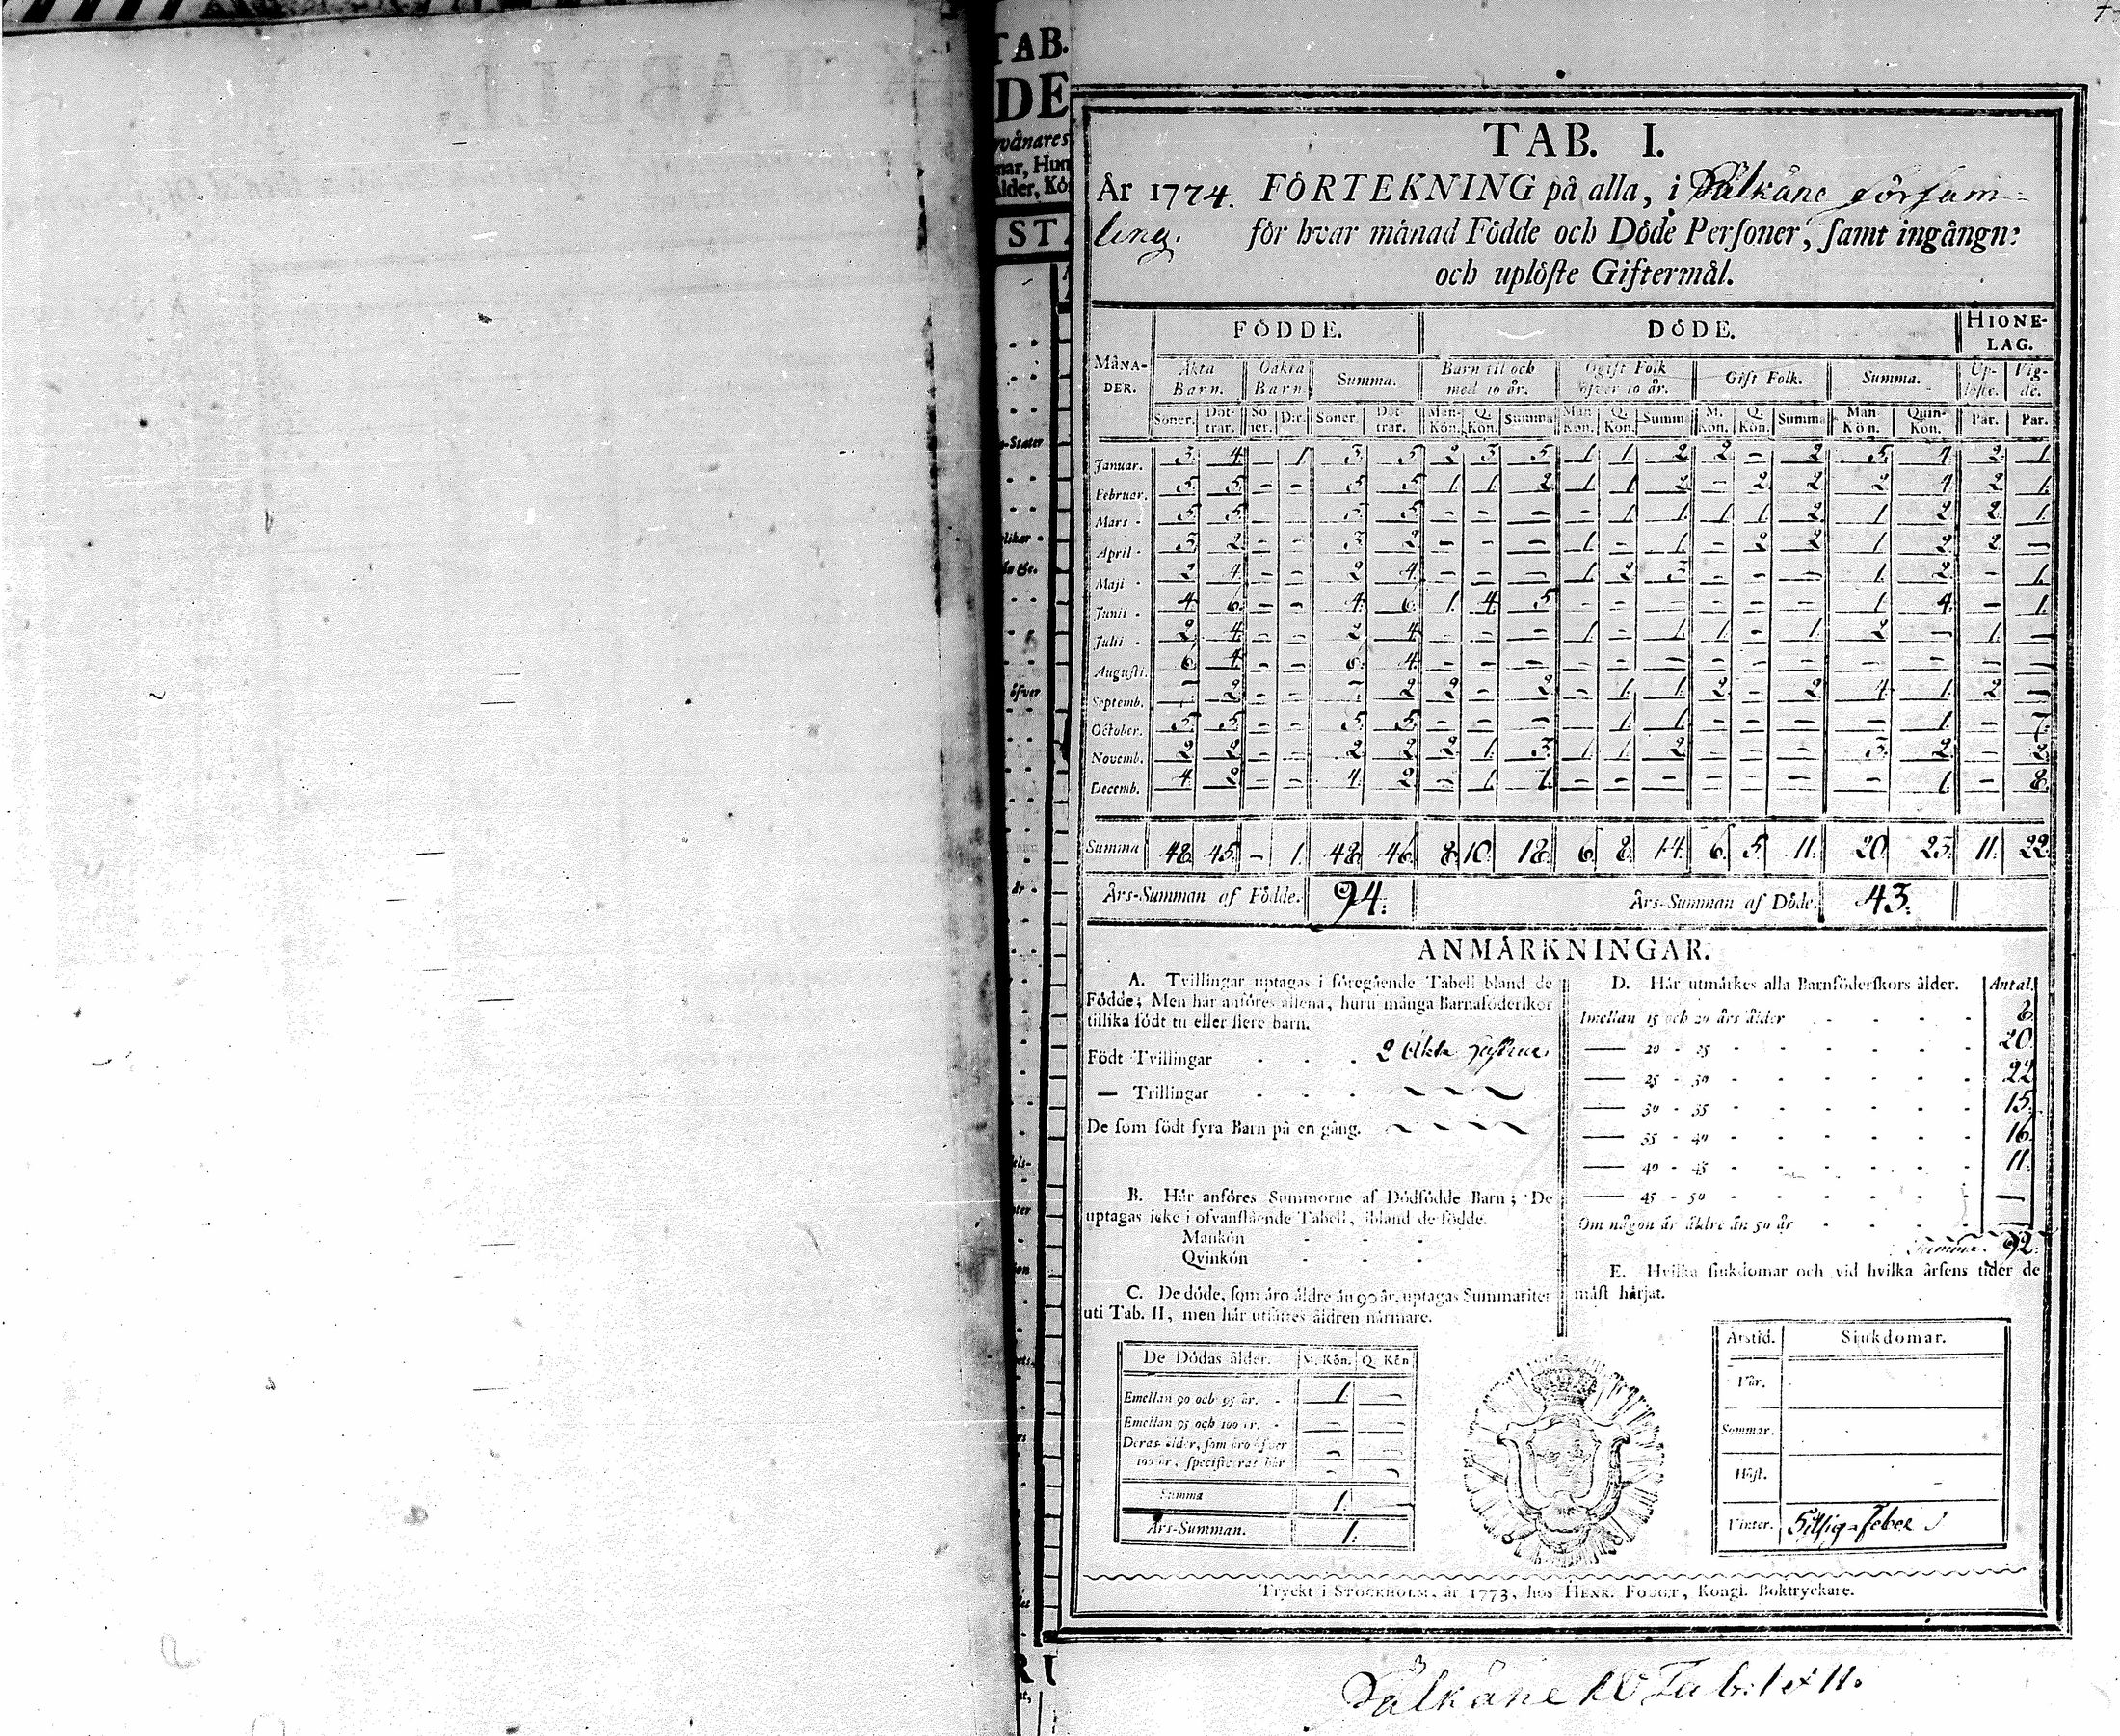 TAB.
DE
vånares
nar, Hun
lder, Kö
ST
TAB. I.
År 1774. FÖRTEKNING på alla, i Pälkäne Församling. för hvar månad Födde och Döde Personer, samt ingångne
och uplöste Giftermål.
MÅNADER. FÖDDE. DÖDE. HIONELAG.
Äkta Barn. Oäkta Barn Summa. Barn til och med 10 år. Ogift Folk öfver 10 år. Gift Folk. Summa. Uplöste. Vigde.
Söner. Döttrar. Söner. Dtr. Söner. Döttrar. Man-Kön. Q. Kön. Summa Man Kön. Q. Kön. Summa M. Kön. Q. Kön. Summa Man-Kön. Quin-Kön. Par. Par.
Januar. 3. 4. - 1 3. 5 2 3 5 1 1 2 2 - 2 5. 4. 2. 1.
Februar. 5 5 - - 5 5 1. 1. 2 1 1 2 - 2 2 2 4 2 1.
Mars - 5 5 - - 5 5 - - - - 1 1. 1 1 2 1 2 2. 1.
April - 3 2 - - 3 2 - - - 1 - 1. - 2 2 1 2 2 -
Maji - 2 4 - - 2 4. - - - 1 2 3 - - - 1. 2. - 1.
Junii - 4 6 - - 4. 6. 1. 4. 5 - - - - - - 1 4. - 1.
Julii - 2 4 - - 2 4. - - - 1 - 1. 1. - 1. 2 - 1. -
Augusti. 6 4 - - 6 4. - - - - - - - - - - - - -
Septemb. 7 2 - - 7 2 2 - 2. - 1. 1. 2 - 2 4. 1. 2 -
October. 5 5 - - 5 5. - - - - 1 1. - - - - 1. - 7.
Novemb. 2 2 - - 2 2 2 1. 3. 1 1 2 - - - 3. 2 - 2.
Decemb. 4 2 - - 4. 2 - 1 1. - - - - - - - 1. - 8.
Summa 48. 45. - 1. 48. 46. 8. 10. 18. 6. 8. 14. 6. 5. 11. 20. 23. 11. 22.
Års-Summan af Födde. 94. Års-Summan af Döde. 43.
ANMÄRKNINGAR.
A. Tvillingar uptagas i föregående Tabell bland de
Födde; Men här anföres allena, huru många Barnaföderskor
tillika födt tu eller flere barn.
Födt Tvillingar - - - 2 Äkta
— Trillingar - - -
De som födt fyra Barn på en gång.
B. Här anföres Summorne af Dödfödde Barn; De
uptagas icke i ofvanstående Tabell, ibland de födde.
Mankön - - -
Qvinkön - - -
C. De döde, som äro äldre än 90 år, uptagas Summariter
uti Tab. II, men här utsättes åldren närmare.
De Dödas ålder. M. Kön. Q. Kön
Emellan 90 och 95 år. - 1 -
Emellan 95 och 100 år. - - -
Deras ålder, som äro öfver - -
100 år, specificeras här - -
Summa 1.
Års-Summan. 1.
D. Här utmärkes alla Barnföderskors ålder. Antal.
Imellan 15 och 20 års ålder - - - - 8
— 20 - 25 - - - - - - 20.
— 25 - 30 - - - - - - 22
— 30 - 35 - - - - - - 15.
— 35 - 40 - - - - - - 16.
— 40 - 45 - - - - - - 11.
— 45 - 50 - - - - - - —
Om någon är äldre än 50 år - - - - —
Summa. 92.
E. Hvilka sjukdomar och vid hvilka årsens tider de
mäst härjat.
Årstid. Sjukdomar.
Vår.
Sommar.
Höst.
Vinter. Hitsig-feber
Tryckt i STOCKHOLM, år 1773, hos HENR. FOUGT, Kongl. Boktryckare.
Pälkäne Tab: I et II.